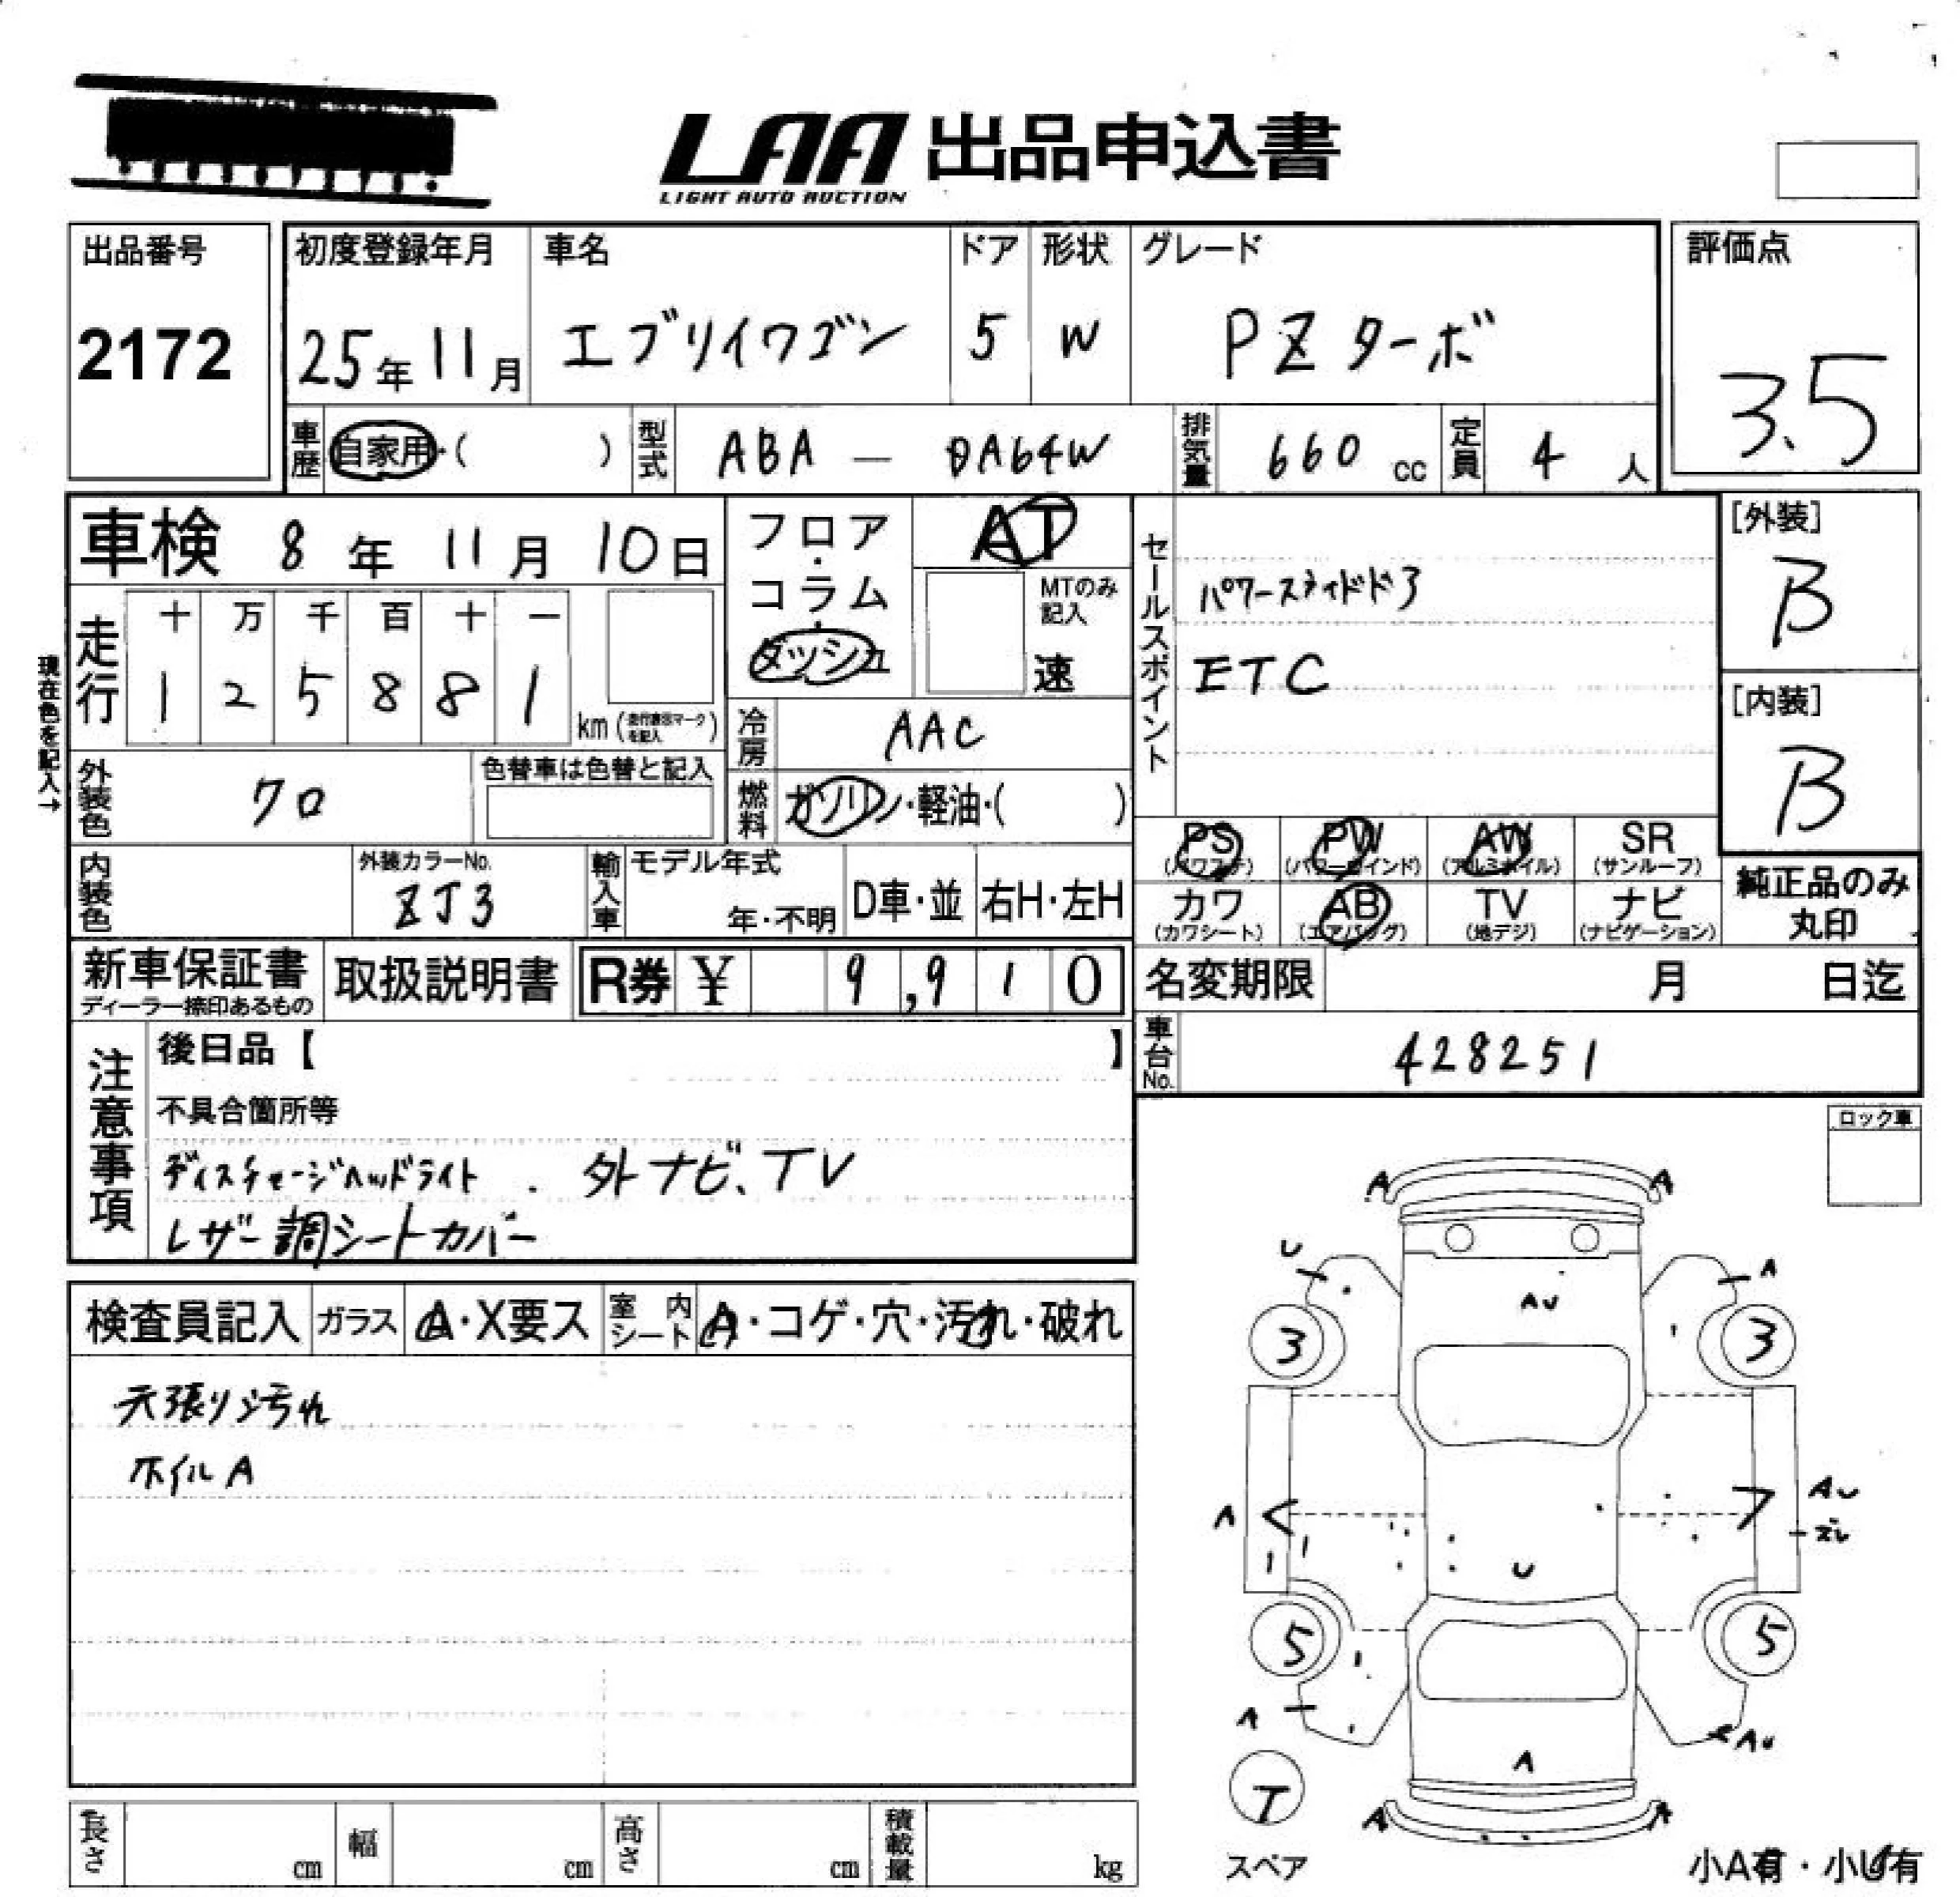 LAA 出品申込書
LIGHT AUTO AUCTION
出品番号
2172
初度登録年月
25年 11月
車名
エブリイワゴン
ドア
5
形状
W
グレード
PZ ターボ
評価点
3.5
車歴 自家用・( )
型式 ABA － DA64W
排気量 660 cc
定員 4 人
車検 8年 11月 10日
現在色を記入→
走行
十 万 千 百 十 一
1 2 5 8 8 1
km (走行表示マークを記入)
フロア・コラム・ダッシュ
AT
MTのみ記入
速
冷房 AAC
燃料 ガソリン・軽油・( )
セールスポイント
パワースライドドア
ETC
[外装]
B
[内装]
B
外装色 クロ
色替車は色替と記入
内装色
外装カラーNo.
ZJ3
輸入車
モデル年式
年・不明
D車・並
右H・左H
PS (パワステ)
PW (パワーウインド)
AW (アルミホイル)
SR (サンルーフ)
カワ (カワシート)
AB (エアバッグ)
TV (地デジ)
ナビ (ナビゲーション)
純正品のみ
丸印
新車保証書
ディーラー捺印あるもの
取扱説明書
R券 ¥ 9,910
名変期限 月 日迄
車台No. 428251
注意事項
後日品【 】
不具合箇所等
ディスチャージヘッドライト . 外ナビ、TV
レザー調シートカバー
ロック車
検査員記入
ガラス A・X要ス
室内シート A・コゲ・穴・汚れ・破れ
天張りシ汚れ
ホイルA
A A
U A
AU
3 3
A AU
ズレ
U
5 5
A AU
A
T
A A
スペア
小A有・小U有
長さ cm
幅 cm
高さ cm
積載量 kg